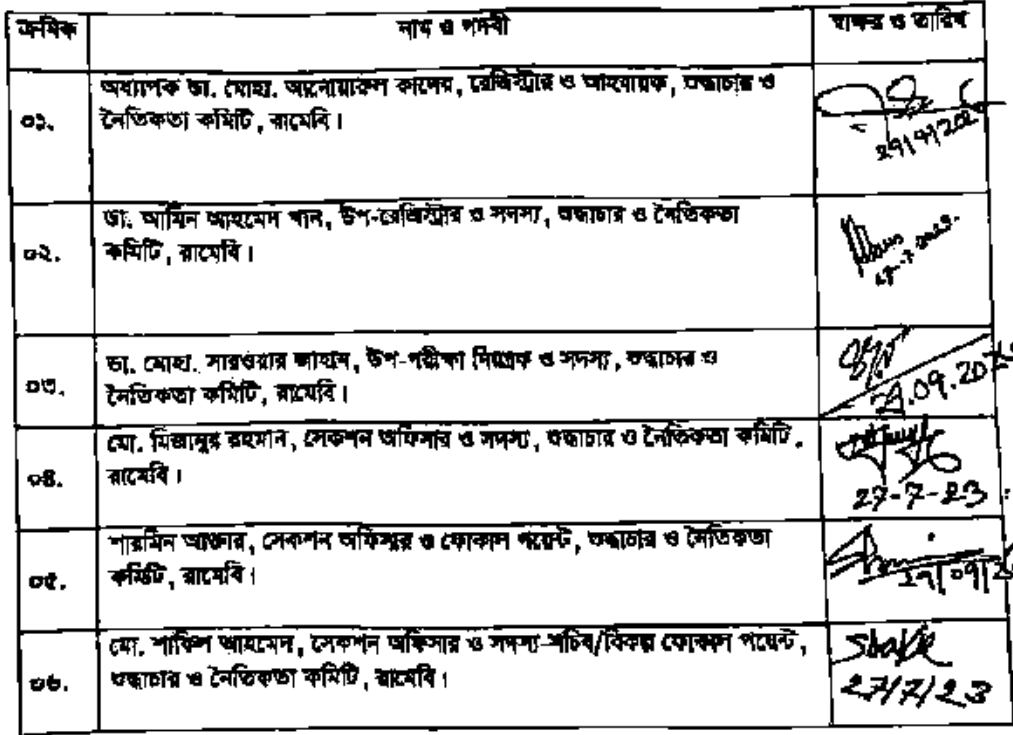 ক্রমিক নাম ও পদবী স্বাক্ষর ও তারিখ
০১. অধ্যাপক ডা. মোহা. আনোয়ারুল কাদের, রেজিস্ট্রার ও আহবায়ক, শুদ্ধাচার ও
নৈতিকতা কমিটি, রামেবি।
০২. ডা. আমিন আহমেদ খান, উপ-রেজিস্ট্রার ও সদস্য, শুদ্ধাচার ও নৈতিকতা
কমিটি, রামেবি।
০৩. ডা. মোহা. সারওয়ার জাহান, উপ-পরীক্ষা নিয়ন্ত্রক ও সদস্য, শুদ্ধাচার ও
নৈতিকতা কমিটি, রামেবি।
০৪. মো. মিজানুর রহমান, সেকশন অফিসার ও সদস্য, শুদ্ধাচার ও নৈতিকতা কমিটি,
রামেবি।
27-7-23
০৫. শারমিন আক্তার, সেকশন অফিসার ও ফোকাল পয়েন্ট, শুদ্ধাচার ও নৈতিকতা
কমিটি, রামেবি।
০৬. মো. শাকিল আহমেদ, সেকশন অফিসার ও সদস্য-সচিব/বিকল্প ফোকাল পয়েন্ট,
শুদ্ধাচার ও নৈতিকতা কমিটি, রামেবি।
27/7/23